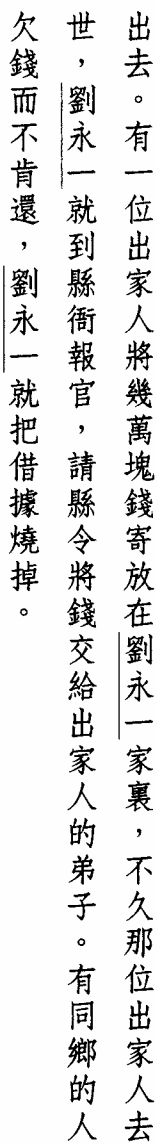 出去。有一位出家人將幾萬塊錢寄放在劉永一家裏，不久那位出家人去
世，劉永一就到縣衙報官，請縣令將錢交給出家人的弟子。有同鄉的人
欠錢而不肯還，劉永一就把借據燒掉。